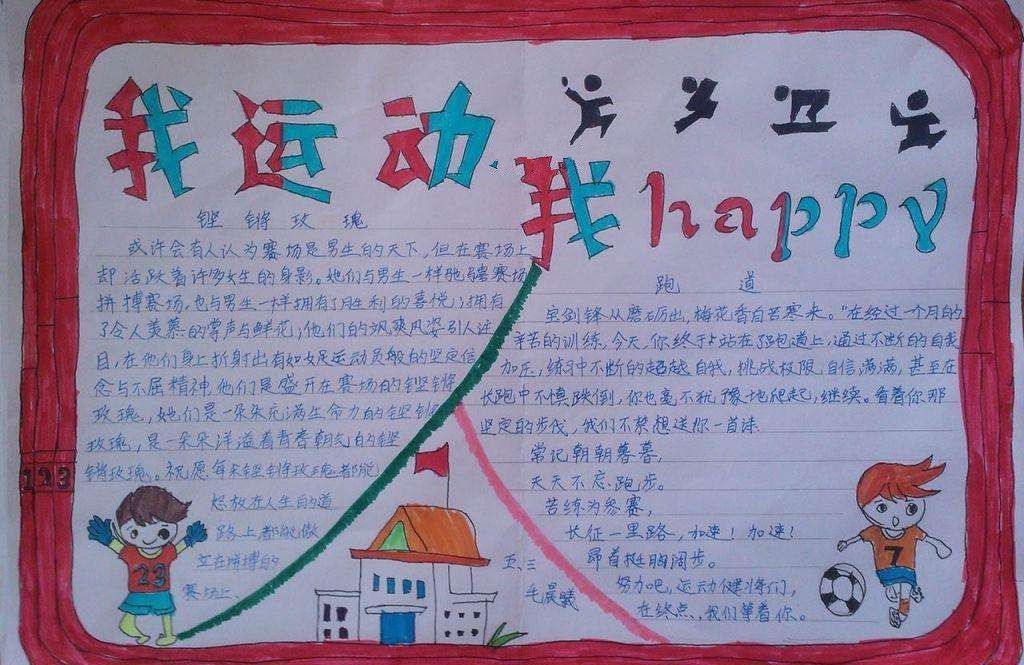 我运动
我happy
铿锵玫瑰
或许会有人认为赛场是男生的天下，但在赛场上
却活跃着许多女生的身影。她们与男生一样驰骋赛场
拼搏赛场，也与男生一样拥有了胜利的喜悦；拥有
了令人羡慕的掌声与鲜花，他们的飒爽风姿引人注
目，在他们身上折射出有如女足运动员般的坚定信
念与不屈精神，他们是盛开在赛场的铿锵
玫瑰，她们是一朵朵充满生命力的铿锵
玫瑰，是一朵朵洋溢着青春朝气的铿
锵玫瑰。祝愿每朵铿锵玫瑰都能
怒放在人生的道
路上都能傲
立在拼搏的
赛场上
跑道
宝剑锋从磨砺出，梅花香自苦寒来。"在经过一个月的
辛苦的训练，今天，你终于站在了跑道上，通过不断的自我
加压，练习中不断的超越自我，挑战极限，自信满满，甚至在
长跑中不慎跌倒，你也毫不犹豫地爬起，继续。看着你那
坚定的步伐，我们不禁想送你一首诗.
常记朝朝暮暮，
天天不忘跑步。
苦练为参赛，
长征一里路，加速！加速！
昂首挺胸阔步。
努力吧，运动健将们，
在终点，我们等着你。
五.三
毛晨曦
123
23
7